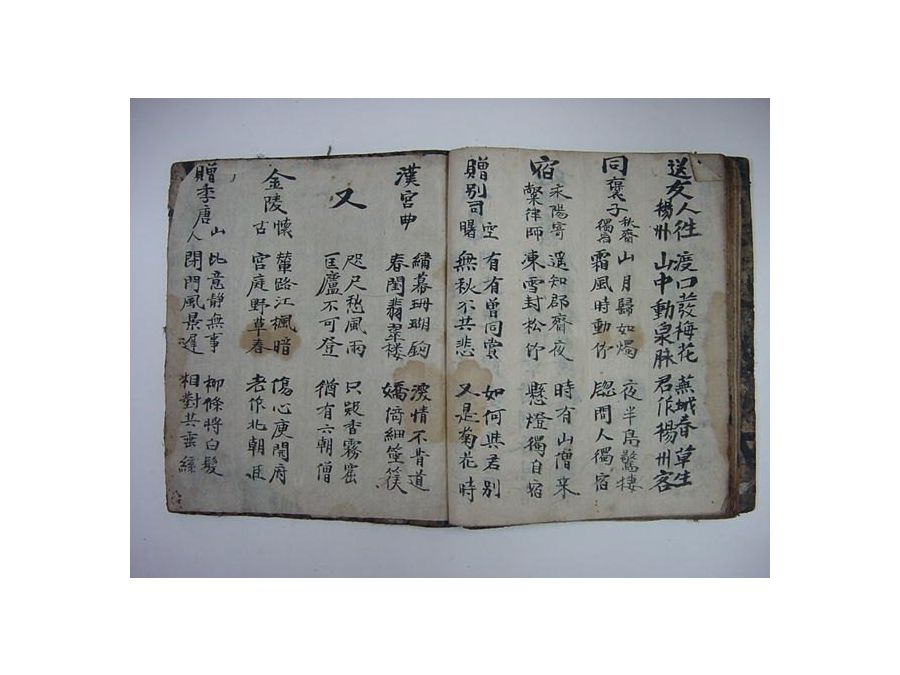 送友人往楊州
渡口發梅花
山中動泉脉
蕪城春草生
君作楊州客
同褒子秋齋獨宿
山月歸如燭
霜風時動竹
夜半鳥驚棲
窓間人獨宿
宿永陽寄璨律師
遥知郡齋夜
凍雪封松竹
時有山僧來
懸燈獨自宿
贈別司空曙
有有曾同賞
無秋不共悲
如何共君別
又是菊花時
漢宮曲
繡幕珊瑚鉤
春閨翡翠楼
深情不肯道
嬌倚細箜篌
又
咫尺愁風雨
匡廬不可登
只疑香霧窟
猶有六朝僧
金陵懷古
輦路江楓暗
宮庭野草春
傷心庾開府
老作北朝臣
贈李唐山人
此意靜無事
閉門風景遲
柳條將白髮
相對共垂絲